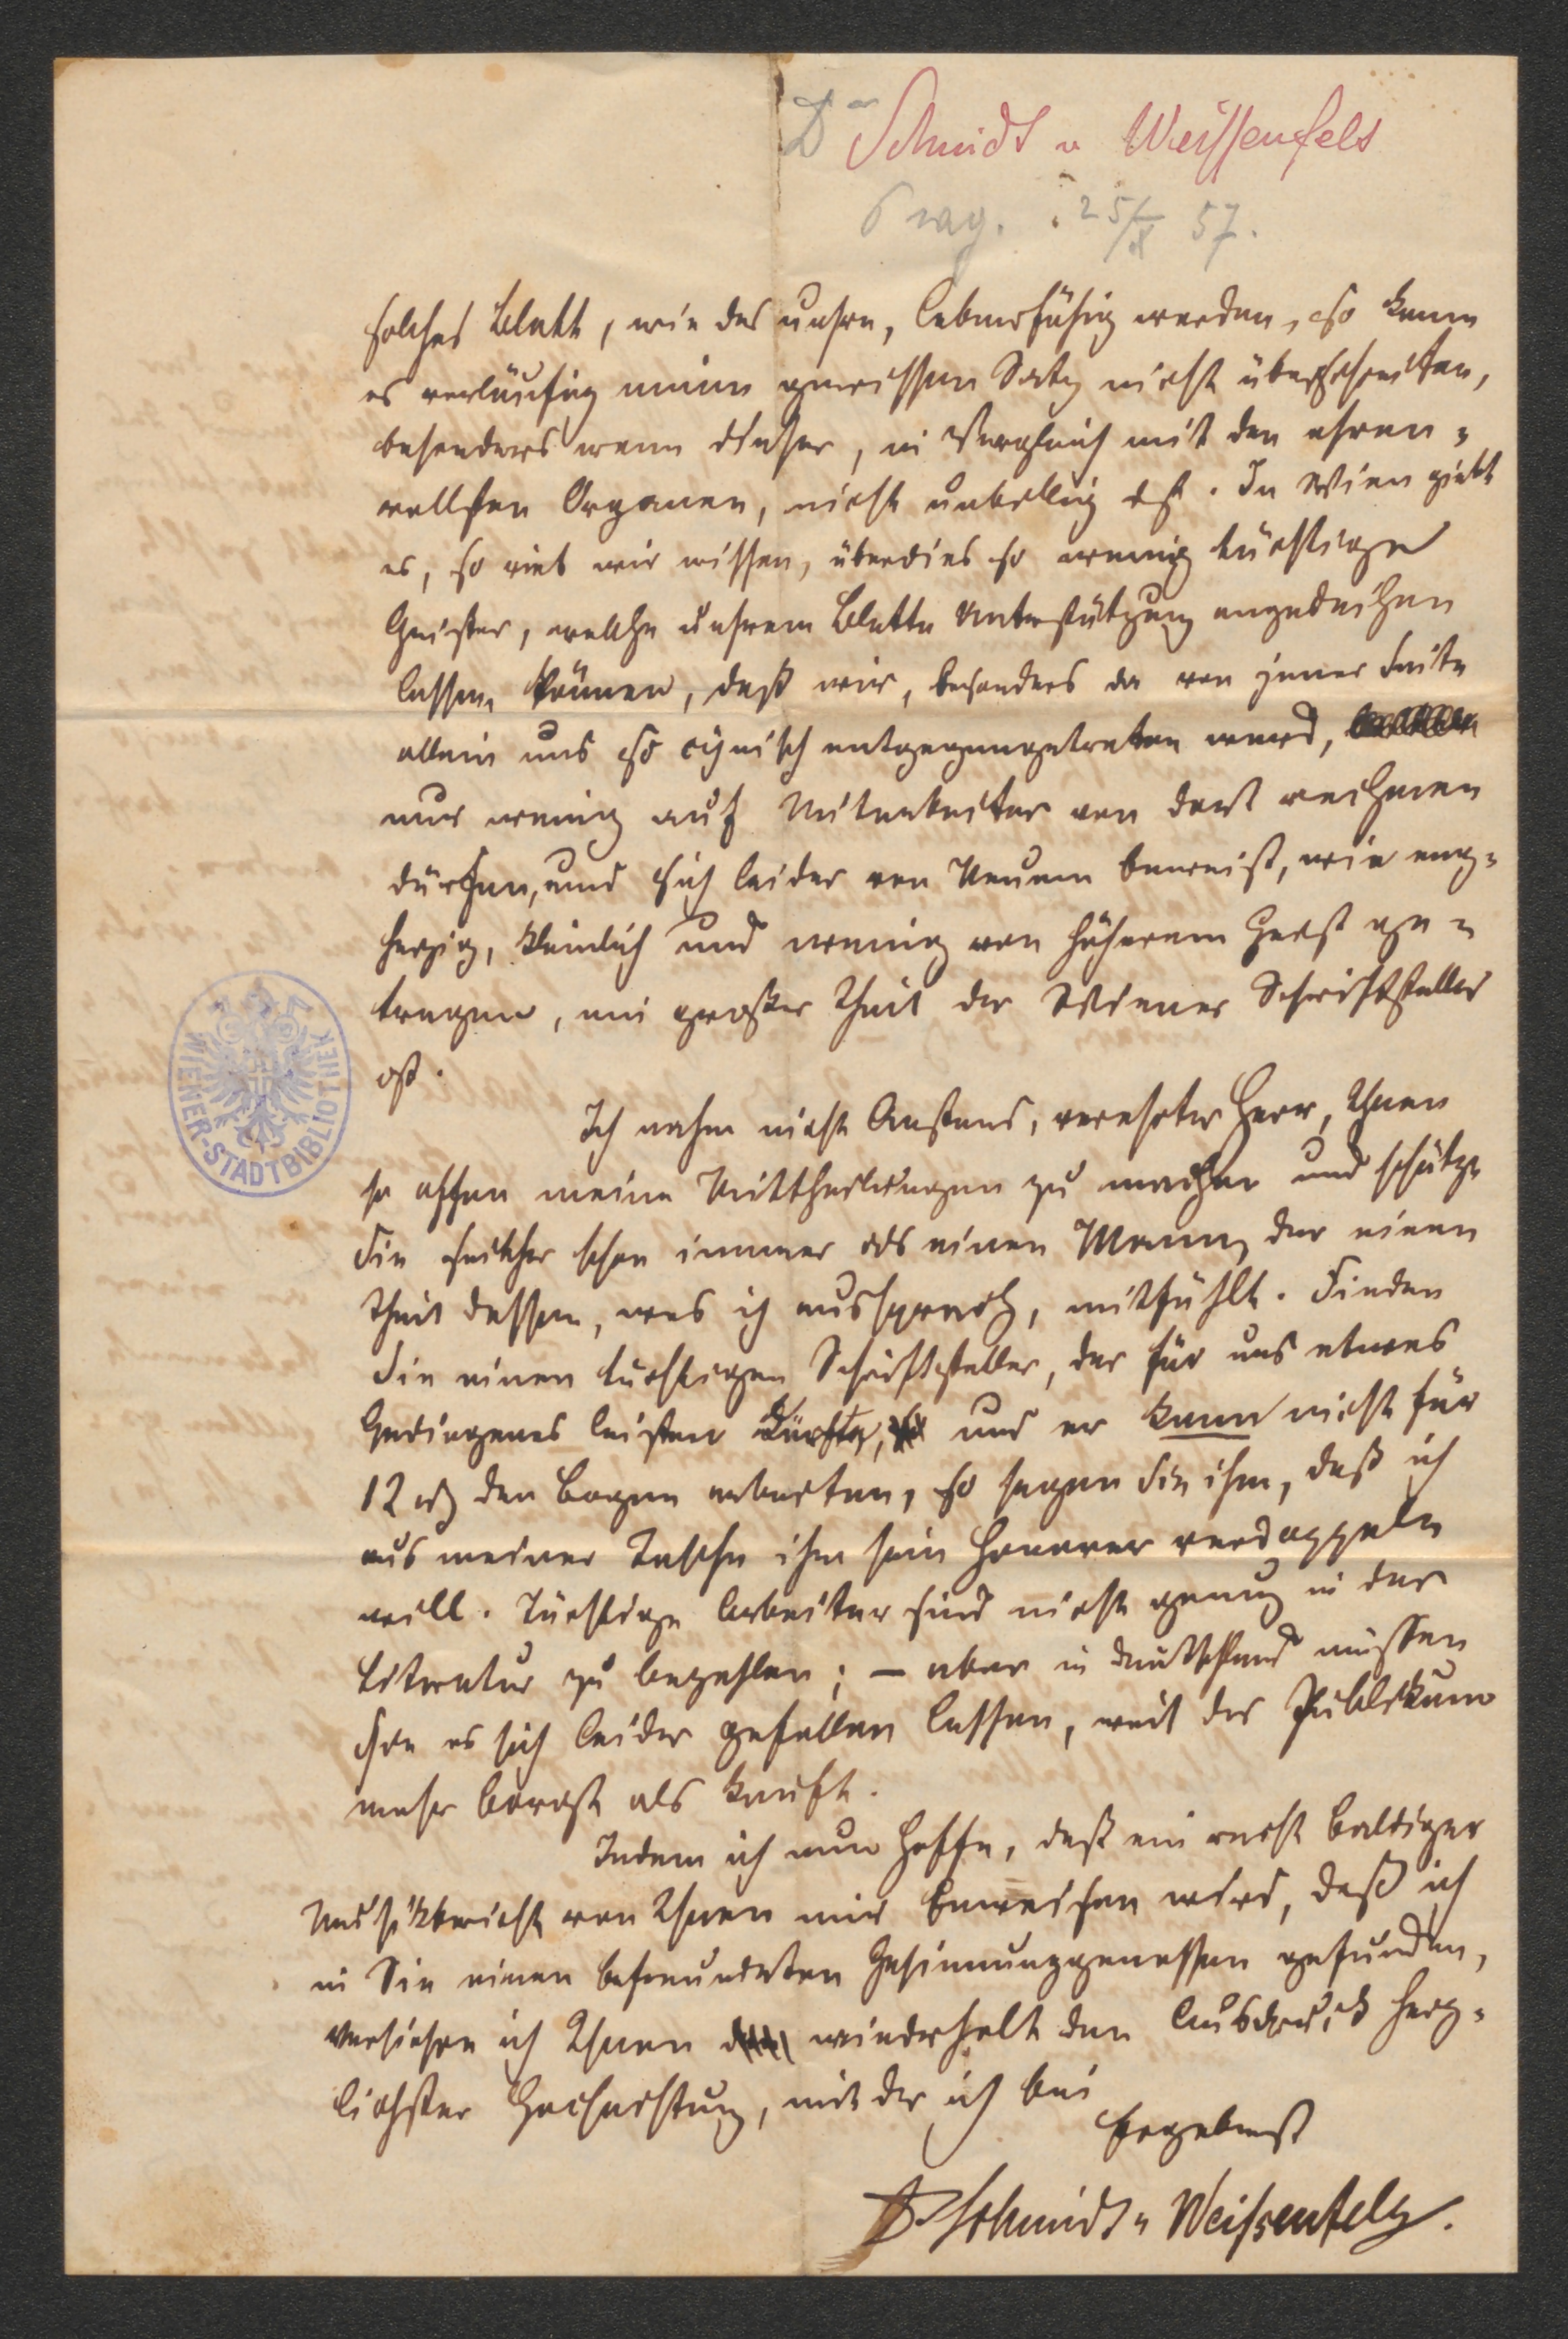 Dr Schmidt v Weissenfels
Prag. 25/X 57.
solches Blatt, wie das unsre, lebensfähig werden, so kann
es vorläufig einen gewissen Satz nicht überschreiten,
besonders wenn dieser, im Vergleich mit den ehren-
vollsten Organen, nicht unbillig ist. In Wien giebt
es, so viel wir wissen, überdies so wenig tüchtige
Geister, welche unserem Blatte Unterstützung angedeihen
lassen können, daß wir, besonders da von jener Seite
allein uns so cynisch entgegengetreten wird,
nur wenig auf Mitarbeiter von dort rechnen
dürfen, und sich leider von Neuem beweist, wie eng-
herzig, kleinlich und wenig von höherem Geist ge-
tragen, ein großer Theil der Wiener Schriftsteller
ist.
Ich nahm nicht Anstand, verehrter Herr, Ihnen
so offen meine Mittheilungen zu machen und schätze
Sie seither schon immer als einen Mann, der einen
Theil dessen, was ich aussprach, mitfühlt. Finden
Sie einen tüchtigen Schriftsteller, der für uns etwas
Gediegenes leisten dürfte, und er kann nicht für
12 den Bogen arbeiten, so sagen Sie ihm, daß ich
aus meiner Tasche ihm sein Honorar verdoppeln
will. Tüchtige Arbeiter sind nicht genug in der
Literatur zu bezahlen; – aber in Deutschland müssen
sie es sich leider gefallen lassen, weil das Publikum
mehr borgt als kauft.
Indem ich nun hoffe, daß ein recht baldiger
Musikbericht von Ihnen mir beweisen wird, daß ich
in Sie einen befreundeten Gesinnungsgenossen gefunden,
versichre ich Ihnen wiederholt den Ausdruck herz-
lichster Hochachtung, mit der ich bin
Ergebenst
Dr Schmidt-Weißenfels.
WIENER-STADTBIBLIOTHEK